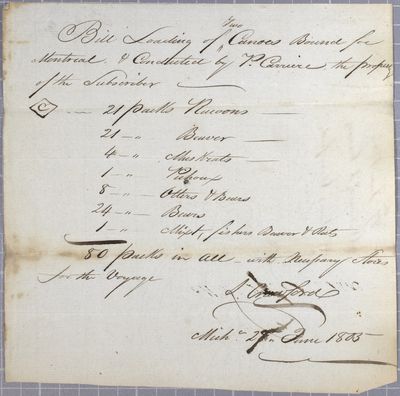 Bill Loading of Two Canoes Bound for
Montreal & Conducted by P. Carriere the property
of the Subscriber
C 21 packs Racoons
21 — " Beaver
4 — " Muskrats
1 — " Pichoux
8 — " Otters & Bears
24 — " Bears
1 — " Mixt, fishers Beaver & Rats
80 packs in all with Necessary Stores
for the Voyage
L. Crawford
Mich. 27th June 1805